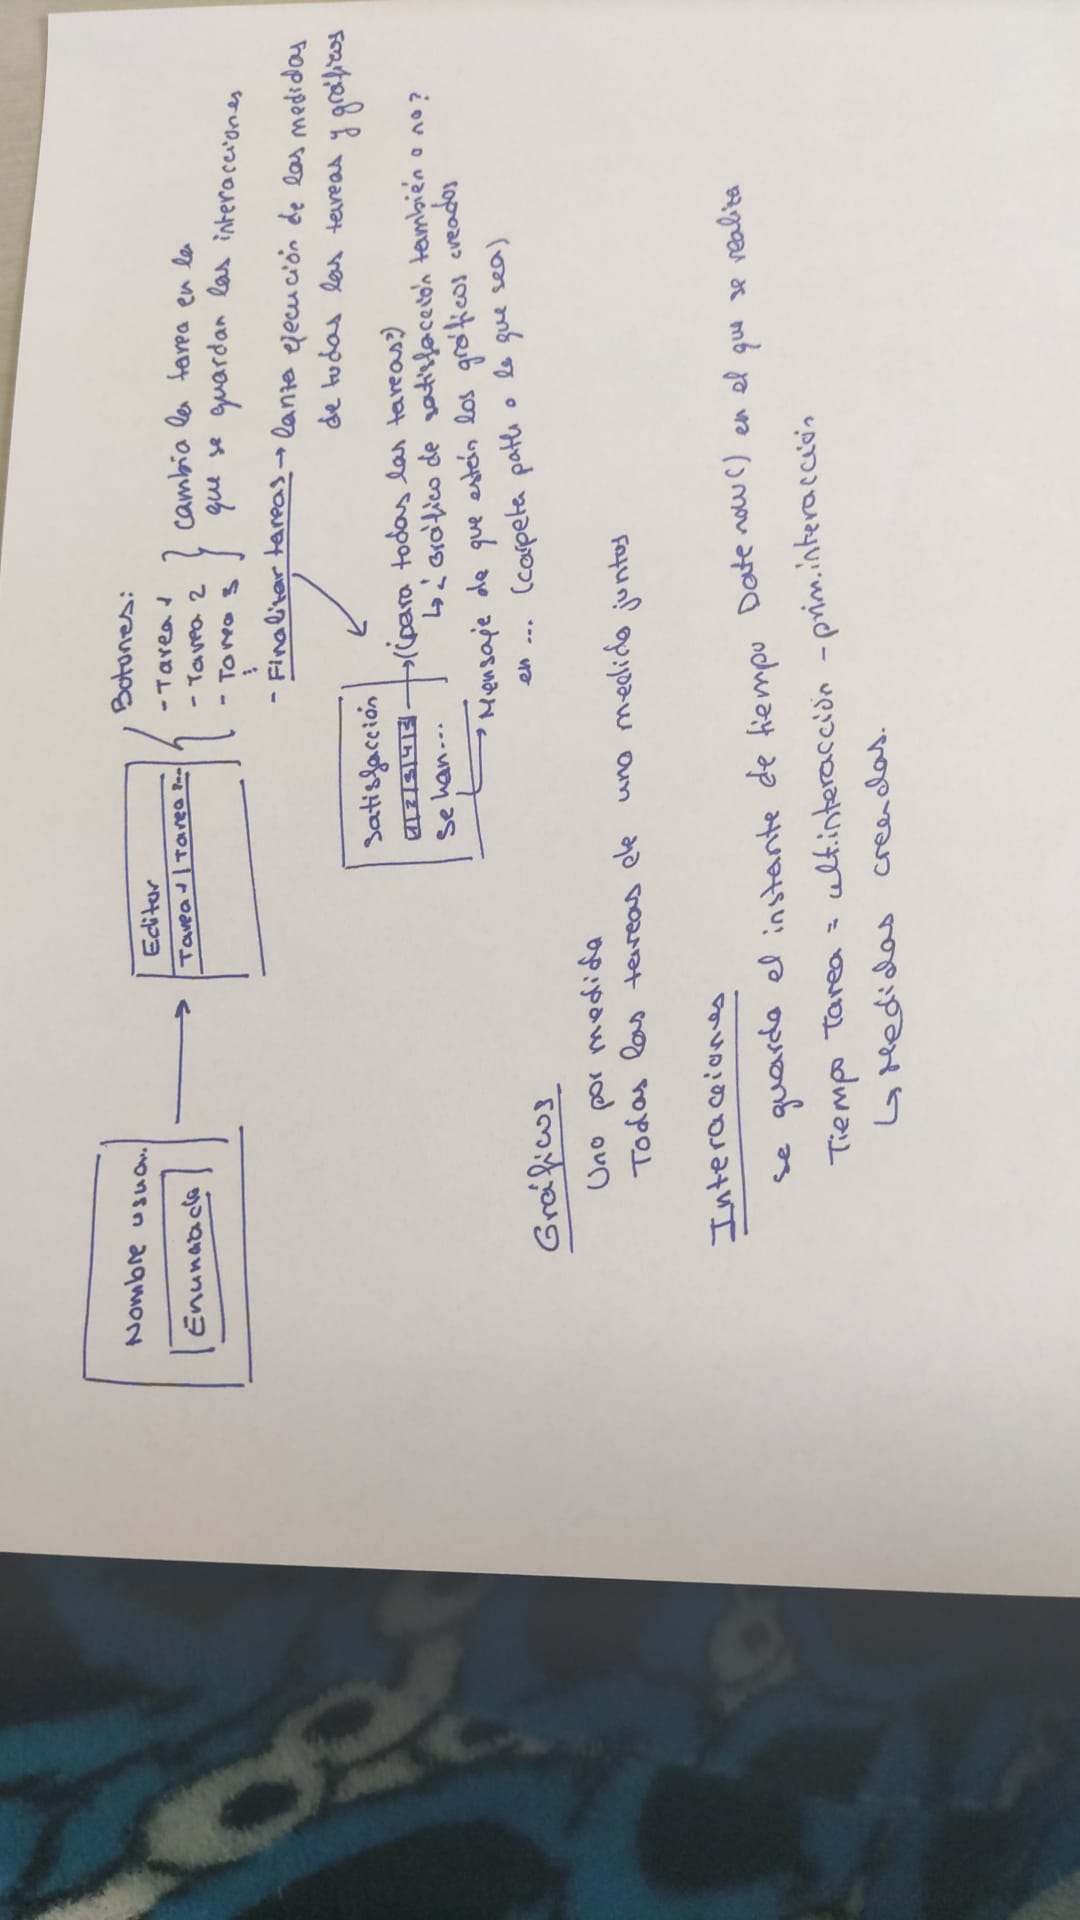 Nombre usua..
Enunciado
Editor
Tarea 1 | Tarea 2...
Botones:
- Tarea 1
- Tarea 2
- Tarea 3
cambia la tarea en la
que se guardan las interacciones
- Finalizar tareas → lanza ejecución de las medidas
de todas las tareas y gráficos
Satisfacción
1|2|3|4|5 → (¿para todas las tareas?)
↳ ¿Gráfico de satisfacción también o no?
Se han...
→ Mensaje de que están los gráficos creados
en ... (carpeta path o lo que sea)
Gráficos
Uno por medida
Todas las tareas de una medida juntos
Interacciones
se guarda el instante de tiempo Date now() en el que se realiza
Tiempo Tarea = ult.interacción - prim.interacción
↳ Medidas creadas.